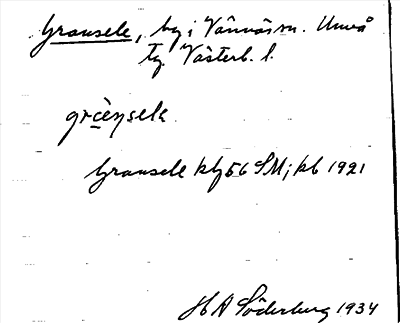 Gransele, by i Vännäs sn. Umeå
tg. Västerb. l.
grèṇsele
Gransele kbf 56 SM; kb 1921
H A Söderberg 1934